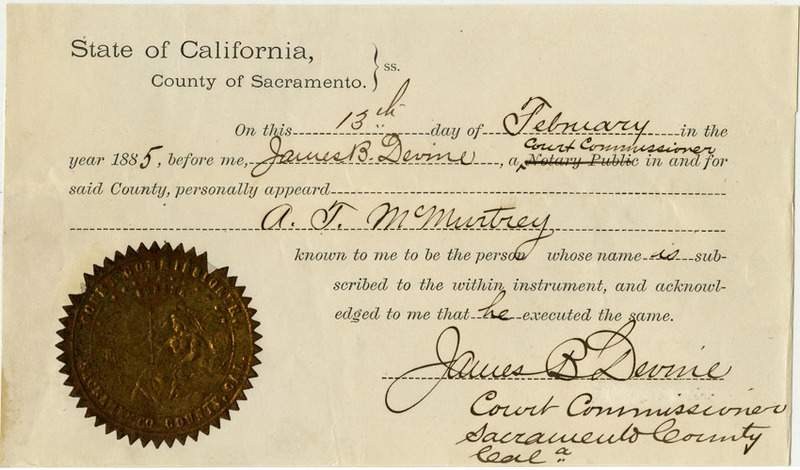 State of California,
County of Sacramento. } ss.
On this 13th day of February in the
year 1885, before me, James B. Devine, a Court Commissioner
Notary Public in and for
said County, personally appeard
A. T. McMurtrey
known to me to be the person whose name is sub-
scribed to the within instrument, and acknowl-
edged to me that he executed the same.
James B Devine
Court Commissioner
Sacramento County
Cala
COURT COMMISSIONER.
SACRAMENTO COUNTY, CAL.